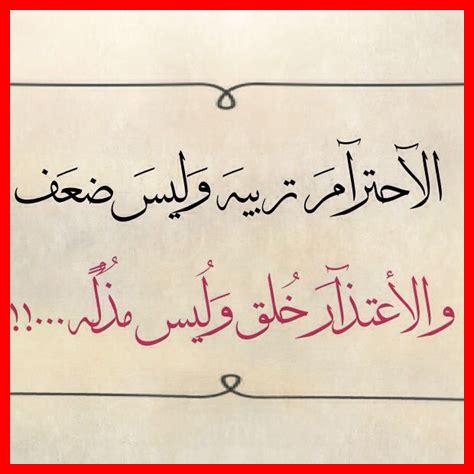 الآحترآمَ تربيهَ وَليسَ ضعَف
والأعتذآرَ خُلق وَلُيس مذُلٌه...!!